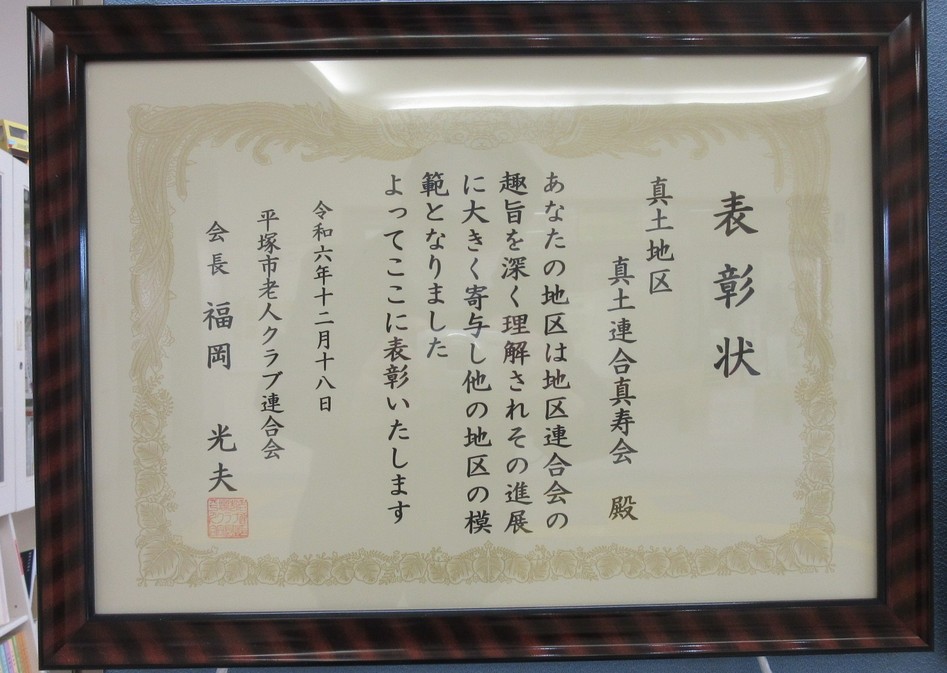 表彰状
真土地区
真土連合真寿会 殿
あなたの地区は地区連合会の
趣旨を深く理解されその進展
に大きく寄与し他の地区の模
範となりました
よってここに表彰いたします
令和六年十二月十八日
平塚市老人クラブ連合会
会長 福岡 光夫